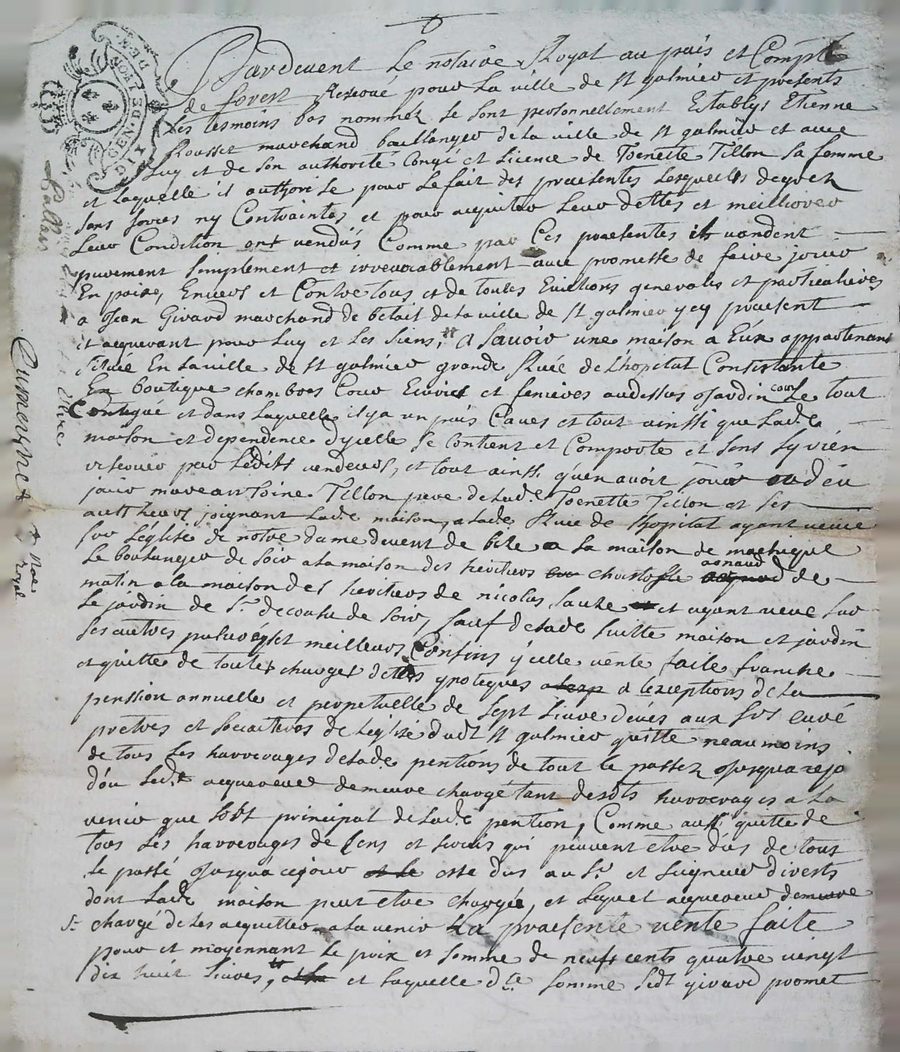 Pardevent Le notaire Royal au païs et Compté
de forest Reservé pour La ville de st galmier et presents
Les tesmoins bas nommez se sont personnellement Establys Etienne
Rousset marchand boullanger de la ville de st galmier et avec
Luy et de son authorité Congé et Licence de Toenette Tillon sa femme
et Laquelle il authorise pour Le fait des praesentes Lesquels de gré
sans forces ny Contraintes et pour acquiter Leur dettes et meilliorer
Leur Condition ont vendus Comme par Ces praesentes ils vandent
purement simplement et irrevocablement avec promesse de faire jouir
En paixe, Envers et Contre tous et de toutes Evictions generales et particulieres
a Jean Girard marchand de betail de la ville de st galmier ycy praesent
et acquerant pour Luy et Les siens, A scavoir une maison a Eux appartenant
situeé En La ville de st galmier grande Rueé de L'hopital Consistante
En boutique chambres Cour Ecuries et fenieres audessus Jardin Le tout
Contiguë et dans Laquelle il y a un puis Caves et tout ainssi que Lad.e
maison et dependence d'ycelle se Contient et Comporte et sans sy rien
reserver par Lesdits vendeurs, et tout ainssi qu'en avoir jouir ou deu
jouir Tillon pere de Lad.e Toenette Tillon et ses
autheurs joignant Lad.e maison, a Lad.e Rue de Lhopital ayant veüe
sur L'église de notre dame devent de bize a La maison de
Le boulanger de soir a La maison des heritiers christofle arnaud de
matin a La maison des heritiers de nicolas et ayant veue sur
Le jardin de sr de soir, sauf de Lad.e suitte maison et jardin
ses autres et meilleurs Confins ycelle vente faite franche
et quitte de toutes charges dettes ypoteques a Lexceptions de La
penssion annuelle et perpetuelle de sept Livre deües aux srs curé
pretres et socaiteres de Léglize dudt st galmier quitte neaumoins
de tous Les harrerages de Lad.e pentions de tout Le passez Jusqua
Led.t acquereur demeure chargé tant desdts harrerages a La
venir que sort principal de Lad.e pention, Comme aussi quitte de
tous Les harrerages de Cens et servis qui peuvent etre dus de tout
Le passé Jusqua ce jour estre dus au sr et seigneur divers
dont Lad.e maison peut etre chargée, et Lequel acquereur demeure
chargé de Les acquitter a La venir La praesente vente faite
pour et moyennant Le prix et somme de neuf cents quatre vingt
dix huit Livres, et Laquelle d.te somme Ledt girard promet
GEN DE LYON
Dumaynet
Nore
Royal